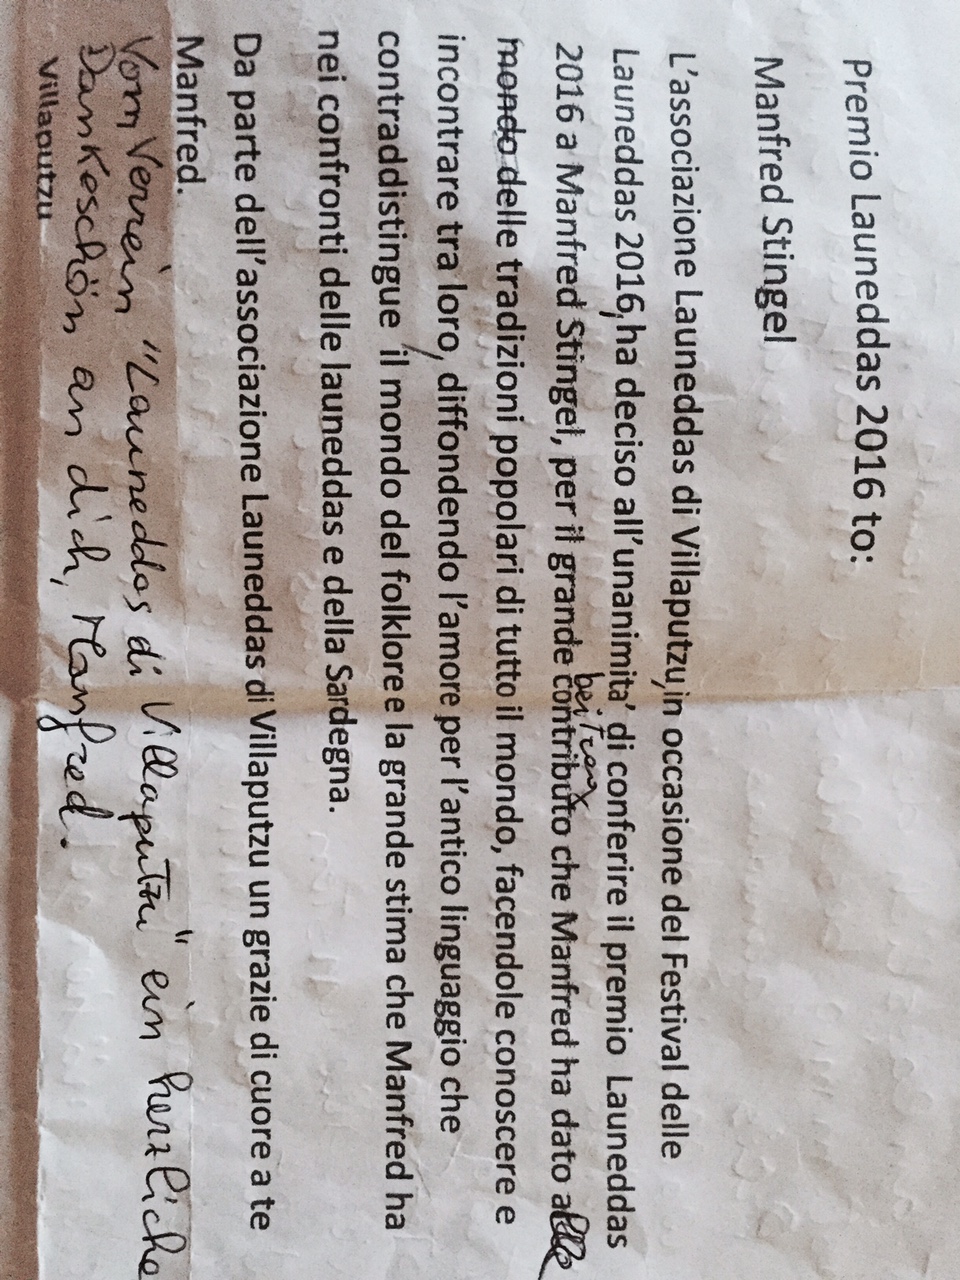 Premio Launeddas 2016 to:
Manfred Stingel
L'associazione Launeddas di Villaputzu, in occasione del Festival delle
Launeddas 2016, ha deciso all'unanimita' di conferire il premio Launeddas
beitrag
2016 a Manfred Stingel, per il grande contributo che Manfred ha dato alle
mondo delle tradizioni popolari di tutto il mondo, facendole conoscere e
incontrare tra loro, diffondendo l'amore per l'antico linguaggio che
contraddistingue il mondo del folklore e la grande stima che Manfred ha
nei confronti delle launeddas e della Sardegna.
Da parte dell'associazione Launeddas di Villaputzu un grazie di cuore a te
Manfred.
Vom Verrein "Launeddas di Villaputzu" ein herzliche
Dankeschön an dich, Manfred.
Villaputzu